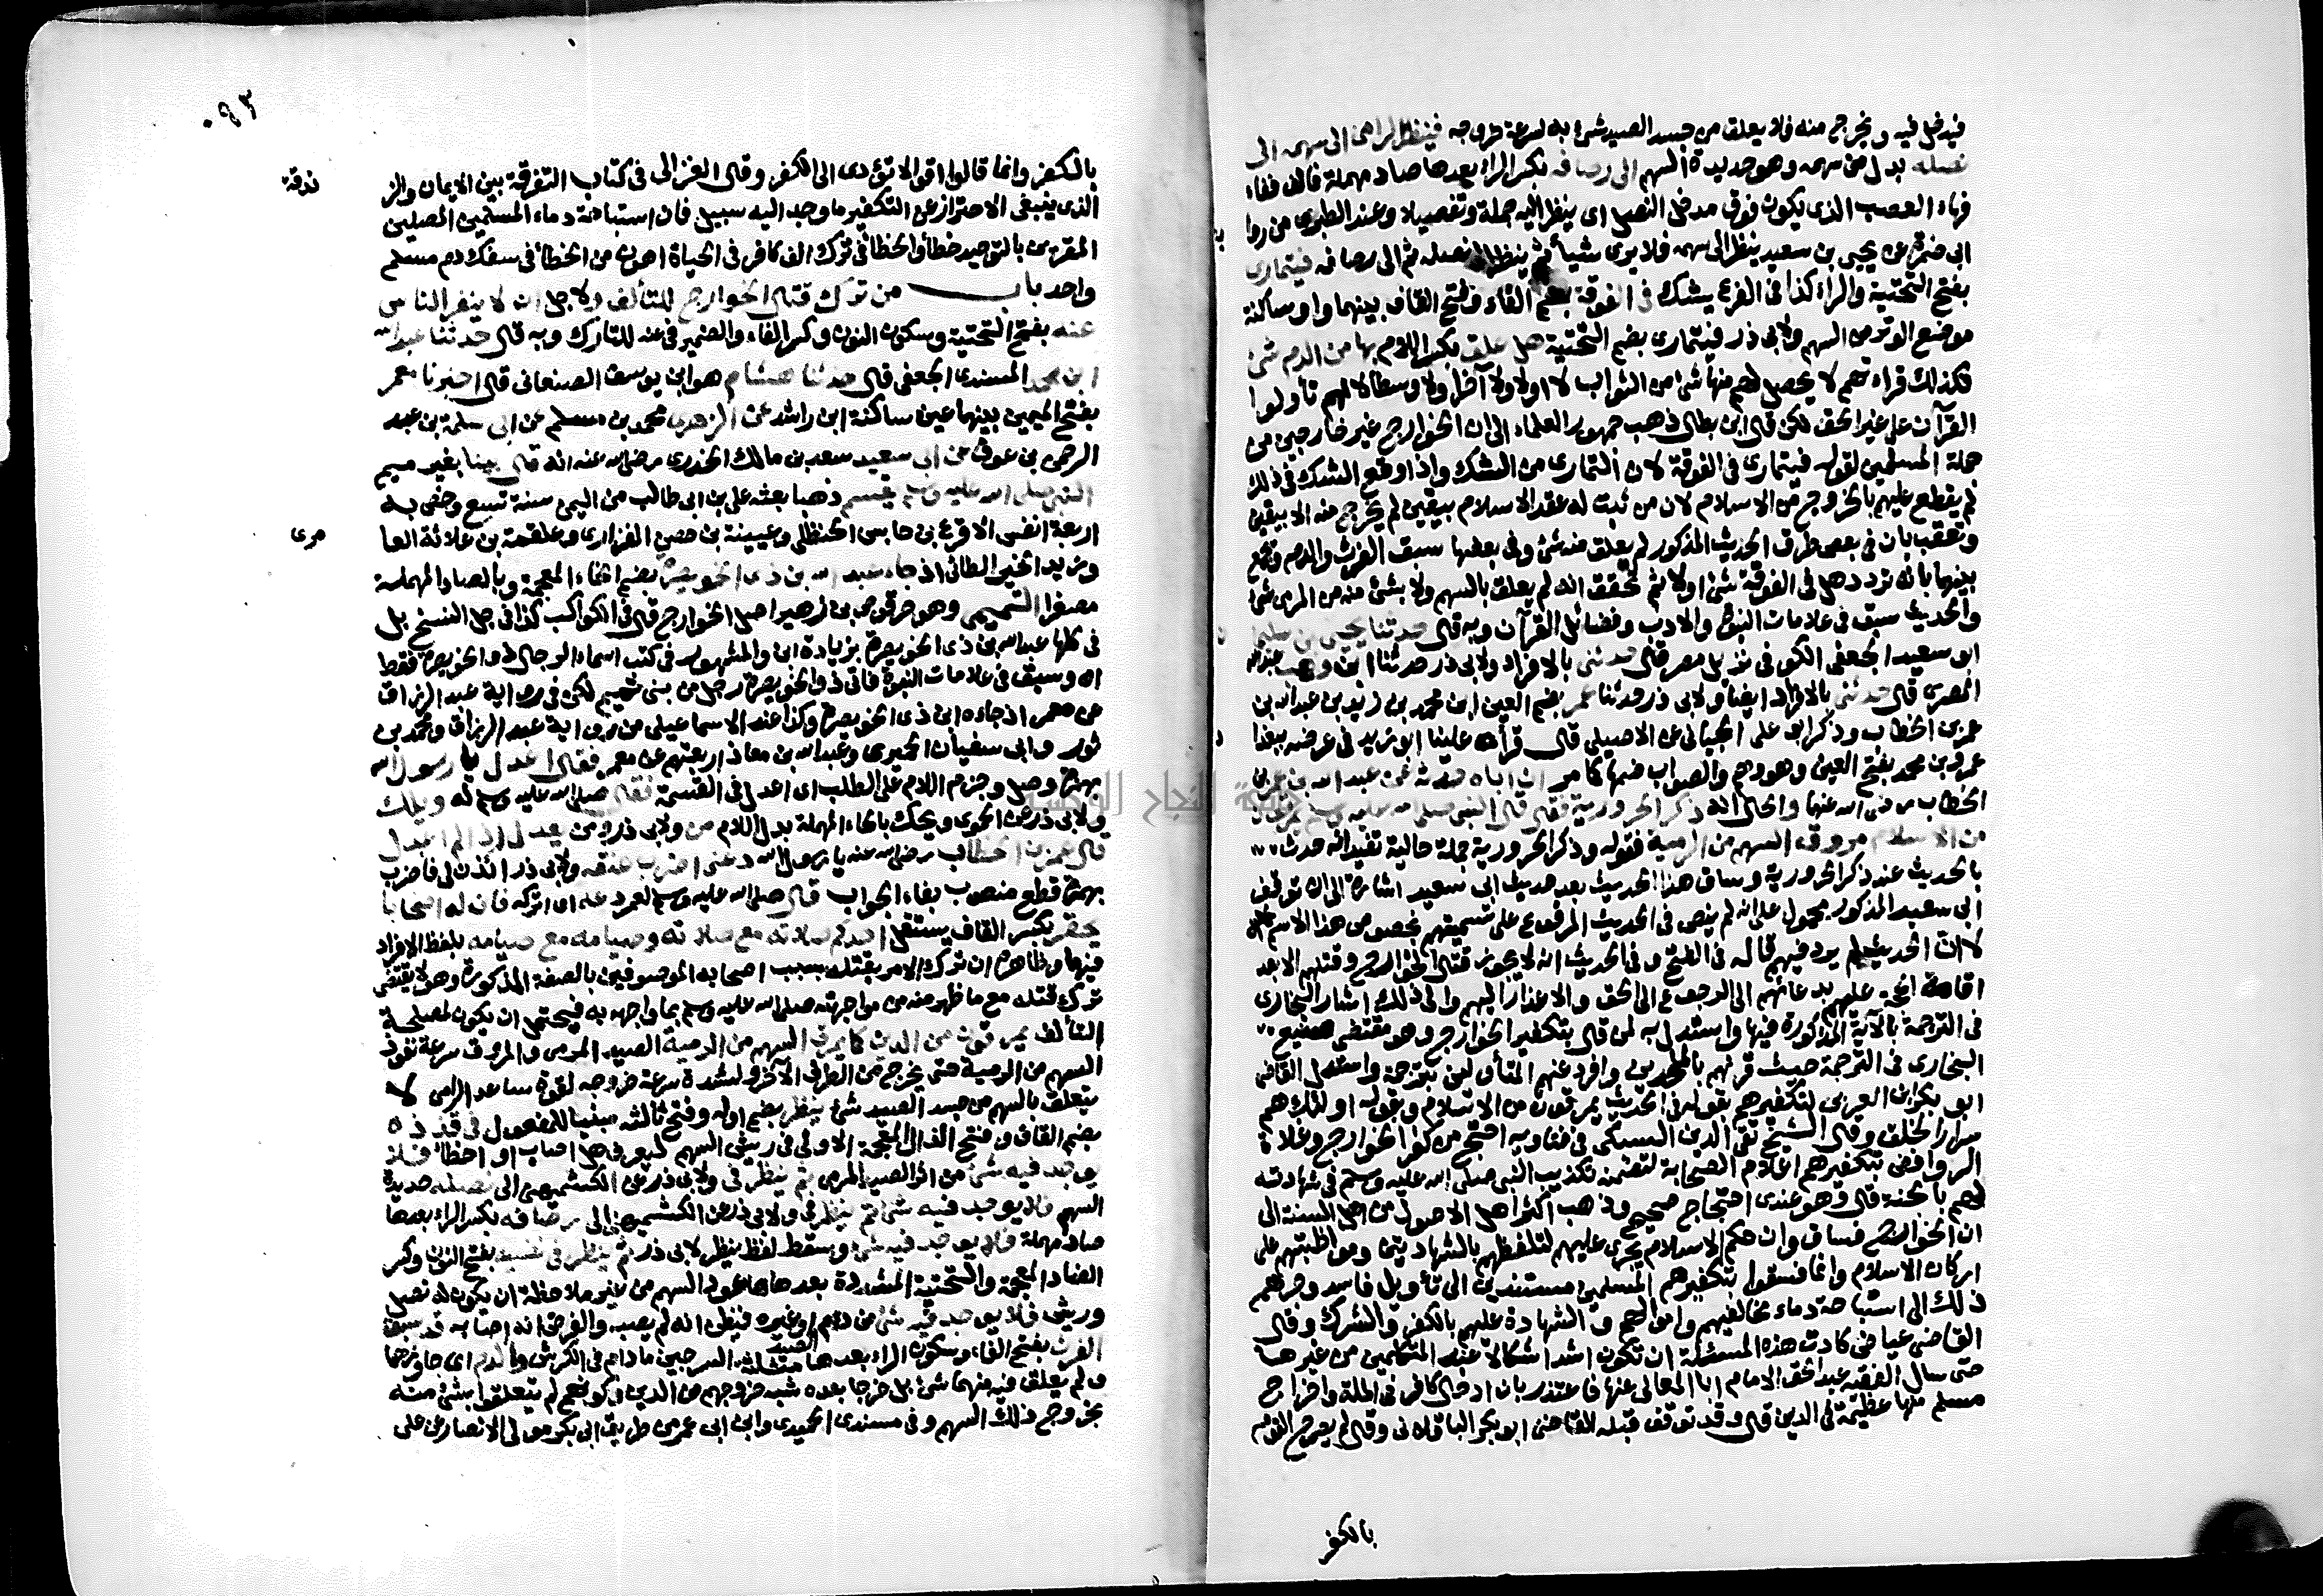 فيدخل فيه ويخرج منه فلا يعلق من جسد الصيد شئ به لسرعة خروجه فينظر الرامى الى سهمه الى
نصله بدل من سهمه وهو حديدة السهم الى رصافه بكسر الراء بعدها صاد مهملة فالف ففاء
فهاء العصب الذى يكون فوق مدخل النصل اى ينظر اليه جملة وتفصيلا وعند الطبرى من روا
ية
ابى ضمرة عن يحيى بن سعيد ينظر الى سهمه فلا يرى شيأ ثم ينظر الى نصله ثم الى رصافه فيتمارى
بفتح التحتية والراء كذا فى الفرع يشك فى الفوقة بضم الفاء وفتح القاف بينهما واو ساكنة
موضع الوتر من السهم ولابى ذر فيتمارى بضم التحتية هل علق بكسر اللام بها من الدم شئ
فكذلك قراءتهم لا يحصل لهم منها شئ من الثواب لا اولا ولا آخرا ولا وسطا لانهم تأولوا
القرآن على غير الحق لكن قال ابن بطال ذهب جمهور العلماء الى ان الخوارج غير خارجين من
جملة المسلمين لقوله فيتمارى فى الفوقة لان التمارى من الشك واذا وقع الشك فى ذلك
لم يقطع عليهم بالخروج من الاسلام لان من ثبت له عقد الاسلام بيقين لم يخرج منه الا بيقين
وتعقب بان فى بعض طرق الحديث المذكور لم يعلق منه شئ وفى بعضها سبق الفرث والدم وجمع
بينهما بانه تردد هل فى الفوقة شئ اولا ثم تحقق انه لم يعلق بالسهم ولا بشئ منه من المرمى شئ
والحديث سبق فى علامات النبوة والادب وفضائل القرآن وبه قال حدثنا يحيى بن سليما
ن
ابو سعيد الجعفى الكوفى نزيل مصر قال حدثنى بالافراد ولابى ذر حدثنا ابن وهب عبد الله
المصرى قال حدثنى بالافراد ايضا ولابى ذر حدثنا عمر بضم العين ابن محمد بن زيد بن عبد الله بن
عمر بن الخطاب وذكر ابو على الجيانى عن الاصيلى قال قرأه علينا ابو زيد فى عرضه ببغدا
د
عمرو بن محمد بفتح العين وهو وهم والصواب ضمها كما مر ان اباه حدثه عن عبد الله بن عمر بن
الخطاب رضى الله عنهما والحال انه ذكر الحرورية فقال قال النبى صلى الله عليه وسلم يمرقون
من الاسلام مروق السهم من الرمية فقوله وذكر الحرورية جملة حالية تفيد انه حدث
بالحديث عند ذكر الحرورية وساق هذا الحديث بعد حديث ابى سعيد اشارة الى ان توقف
ابى سعيد المذكور محمول على انه لم ينص فى الحديث المرفوع على تسميتهم بخصوص هذا الاسم
لا ان الحديث لم يرد فيهم قاله فى الفتح وفى الحديث انه لا يجوز قتال الخوارج وقتلهم الا بعد
اقامة الحجة عليهم بدعائهم الى الرجوع الى الحق والاعذار اليهم والى ذلك اشار البخارى
فى الترجمة بالآية المذكورة فيها واستدل به لمن قال بتكفير الخوارج وهو مقتضى صنيع
البخارى فى الترجمة حيث قرنهم بالملحدين وافرد عنهم المتأولين بترجمة واستدل القاضى
ابو بكر ابن العربى لتكفيرهم بقوله فى الحديث يمرقون من الاسلام وبقوله اولئك هم
شرار الخلق وقال الشيخ تقى الدين السبكى فى فتاويه احتج من كفر الخوارج وغلاة
الروافض بتكفيرهم اعلام الصحابة لتضمنه تكذيب النبى صلى الله عليه وسلم فى شهادته
لهم بالجنة قال وهو عندى احتجاج صحيح وذهب اكثر اهل الاصول من اهل السنة الى
ان الخوارج فساق وان حكم الاسلام يجرى عليهم لتلفظهم بالشهادتين ومواظبتهم على
اركان الاسلام وانما فسقوا بتكفيرهم المسلمين مستندين الى تأويل فاسد وجرهم
ذلك الى استباحة دماء مخالفيهم واموالهم والشهادة عليهم بالكفر والشرك وقال
القاضى عياض كادت هذه المسئلة ان تكون اشد اشكالا عند المتكلمين من غيرها
حتى سال الفقيه عبد الحق الامام ابا المعالى عنها فاعتذر بان ادخال كافر فى الملة واخراج
مسلم منها عظيمة فى الدين قال وقد توقف قبله القاضى ابو بكر الباقلانى وقال لم يصرح القوم
بالكفر
٠٩٣
بالكفر وانما قالوا اقوالا تؤدى الى الكفر وقال الغزالى فى كتاب التفرقة بين الايمان والز
ندقة
الذى ينبغى الاحتراز عن التكفير ما وجد اليه سبيل فان استباحة دماء المسلمين المصلين
المقرين بالتوحيد خطأ والخطأ فى ترك الف كافر فى الحياة اهون من الخطأ فى سفك دم مسلم
واحد باب من ترك قتال الخوارج للتألف ولاجل ان لا ينفر الناس
عنه بفتح التحتية وسكون النون وكسر الفاء والضمير فى عنه للتارك وبه قال حدثنا عبد الله
ابن محمد المسندى الجعفى قال حدثنا هشام هو ابن يوسف الصنعانى قال اخبرنا معمر
بفتح الميمين بينهما عين ساكنة ابن راشد عن الزهرى محمد بن مسلم عن ابى سلمة بن عبد
الرحمن بن عوف عن ابى سعيد سعد بن مالك الخدرى رضى الله عنه انه قال بينا بغير ميم
النبى صلى الله عليه وسلم يقسم ذهبا بعثه على بن ابى طالب من اليمن سنة تسع وخص به
اربعة انفس الاقرع بن حابس الحنظلى وعيينة بن حصن الفزارى وعلقمة بن علاثة العا
مرى
وزيد الخير الطائى اذ جاء عبد الله بن ذى الخويصرة بضم الخاء المعجمة وبالصاد المهملة
مصغرا التميمى وهو حرقوص بن زهير اصل الخوارج قال فى الكواكب كذا فى جل النسخ بل
فى كلها عبد الله بن ذى الخويصرة بزيادة ابن والمشهور فى كتب اسماء الرجال ذو الخويصرة فقط
اه وسبق فى علامات النبوة فاتى ذو الخويصرة رجل من بنى تميم لكن فى رواية عبد الرزاق
عن معمر اذ جاءه ابن ذى الخويصرة وكذا عند الاسماعيلى من رواية عبد الرزاق ومحمد بن
ثور وابى سفيان الحميرى وعبد الله بن معاذ اربعتهم عن معمر فقال اعدل يا رسول الله
بهمزة وصل وجزم اللام على الطلب اى اعدل فى القسمة فقال صلى الله عليه وسلم له ويلك
ولابى ذر عن الحموى ويحك بالحاء المهملة بدل اللام من ولابى ذر ومن يعدل اذا لم اعدل
قال عمر بن الخطاب رضى الله عنه يا رسول الله دعنى اضرب عنقه ولابى ذر ائذن لى فاضرب
بهمزة قطع منصوب بفاء الجواب قال صلى الله عليه وسلم لعمر دعه اى اتركه فان له اصحابا
يحقر بكسر القاف يستقل احدكم صلاته مع صلاته وصيامه مع صيامه بلفظ الافراد
فيهما وظاهره ان ترك الامر بقتله بسبب اصحابه الموصوفين بالصفة المذكورة وهو لا يقتضى
ترك قتله مع ما ظهر منه من مواجهته صلى الله عليه وسلم بما واجهه به فيحتمل ان يكون لمصلحة
التألف يمرقون من الدين كما يمرق السهم من الرمية الصيد المرمى والمروق سرعة نفوذ
السهم من الرمية حتى يخرج من الطرف الآخر ولشدة سرعة خروجه لقوة ساعد الرامى لا
يتعلق بالسهم من جسد الصيد شئ ينظر بضم اوله وفتح ثالثه مبنيا للمفعول فى قذذه
بضم القاف وفتح الذال المعجمة الاولى فى ريش السهم ليعرف هل اصاب او اخطأ فلا
يوجد فيه شئ من اثر الصيد المرمى ثم ينظر فى ولابى ذر عن الكشميهنى الى نصله حديدة
السهم فلا يوجد فيه شئ ثم ينظر فى ولابى ذر عن الكشميهنى الى رصافه بكسر الراء بعدها
صاد مهملة فلا يوجد فيه شئ وسقط لفظ ينظر لابى ذر ثم ينظر فى نضيه بفتح النون وكسر
الضاد المعجمة والتحتية المشددة بعدها هاء عود السهم من غير ملاحظة ان يكون له نصل
وريش فلا يوجد فيه شئ من دم او غيره فيظن انه لم يصبه والفرض انه اصابه قد سبق
الصيد
الفرث بفتح الفاء وسكون الراء بعدها مثلثة السرجين ما دام فى الكرش والدم اى جاوزهما
ولم يعلق فيه منهما شئ بل خرجا بعده شبه خروجهم من الدين وكونهم لم يتعلقوا بشئ منه
بخروج ذلك السهم وفى مسندى الحميدى وابن ابى عمر من طريق ابى بكر مولى الانصار عن على